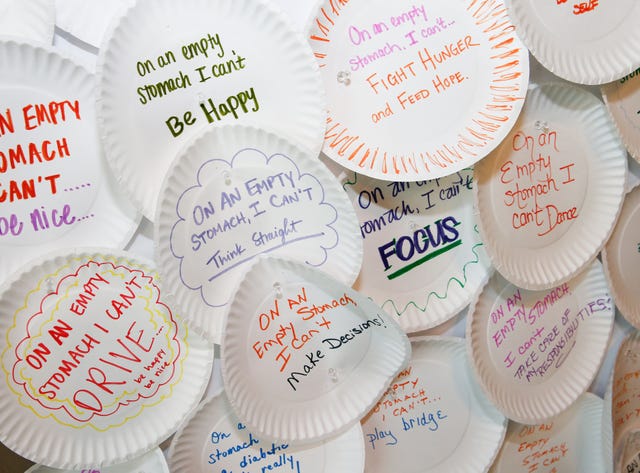 ON AN EMPTY
STOMACH
CAN'T.....
be nice....
On an empty
stomach I can't
Be Happy
On an empty
stomach, I can't...
FIGHT HUNGER
and FEED HOPE.
SELF
ON AN EMPTY
STOMACH, I CAN'T
Think Straight
stomach, I can't
FOCUS
On an
Empty
stomach I
can't Dance
ON AN EMPTY
STOMACH I CAN'T
DRIVE...
be happy
be nice
ON AN
Empty Stomach,
I can't
Make Decisions!
ON AN
EMPTY STOMACH,
I can't
TAKE CARE OF
MY RESPONSIBILITIES!
ON AN
EMPTY
STOMACH
I CAN'T...
play bridge
On a
stomach
diabetic
really
ON AN EMPTY
STOMACH